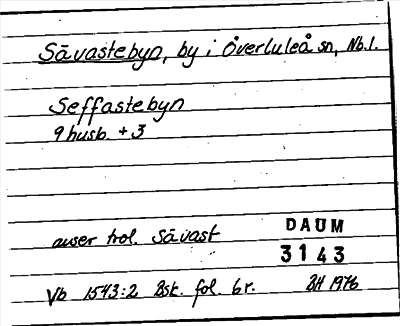 Sävastebyn, by i Överluleå sn, Nb.l.
Seffastebyn
9 husb. + 3
avser trol. Sävast
DAUM
3143
Vb 1543:2 Bsk. fol. 6r.
BH 1976